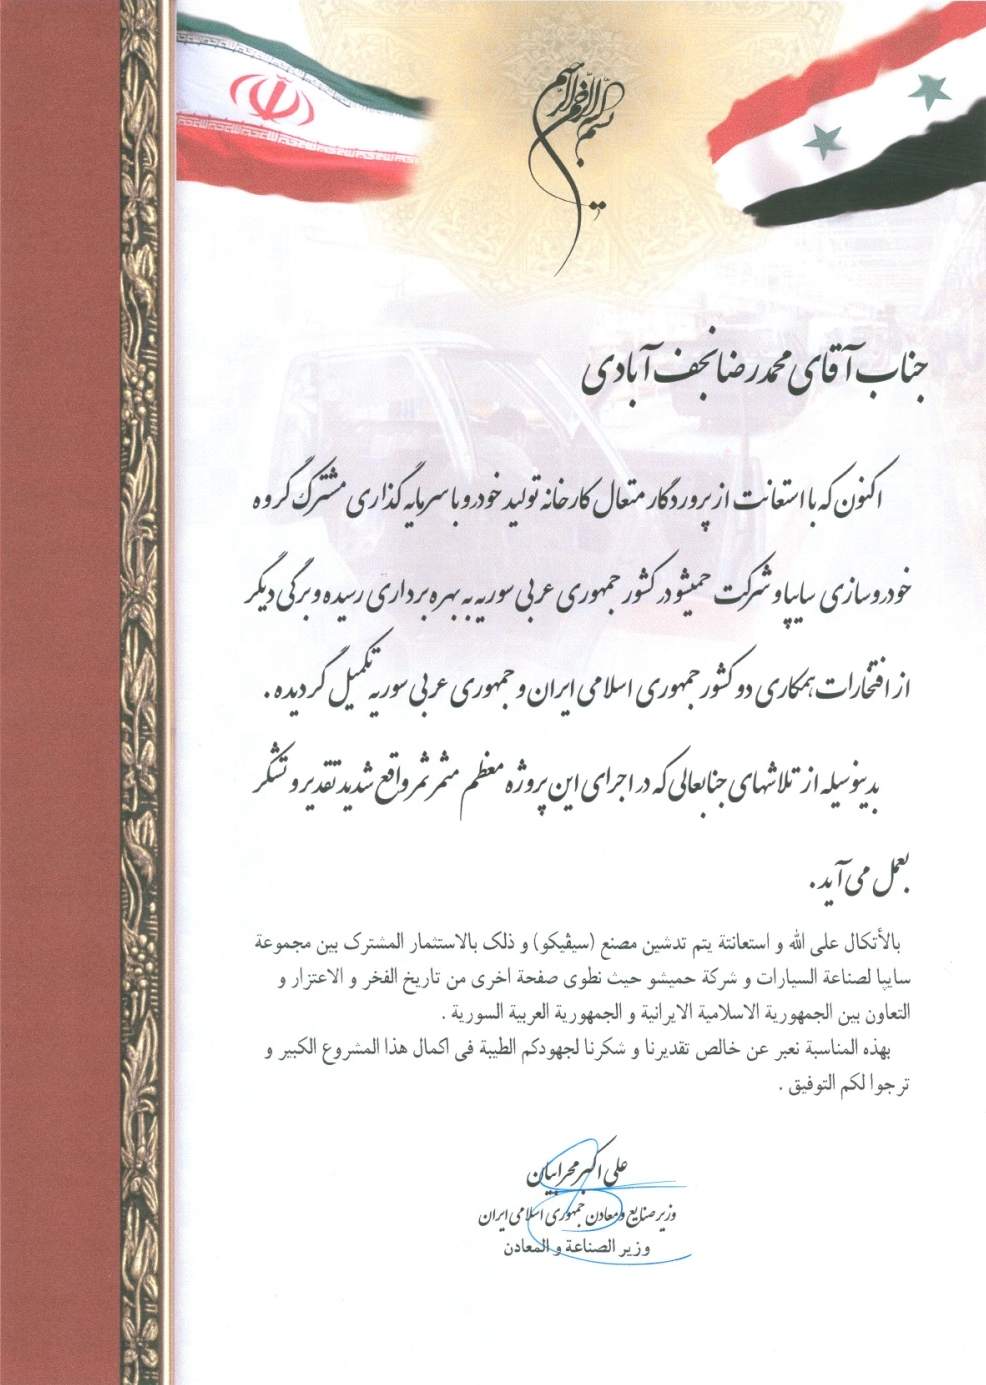 بسم الله الرحمن الرحیم
جناب آقای محمدرضا نجف آبادی
اکنون که با استعانت از پروردگار متعال کارخانه تولید خودرو با سرمایه گذاری مشترک گروه
خودروسازی سایپا و شرکت حمیشو در کشور جمهوری عربی سوریه به بهره برداری رسیده و برگی دیگر
از افتخارات همکاری دو کشور جمهوری اسلامی ایران و جمهوری عربی سوریه تکمیل گردیده .
بدینوسیله از تلاشهای جنابعالی که در اجرای این پروژه معظم مثمر ثمر واقع شدید تقدیر و تشکر
بعمل می آید .
بالأتكال على الله و استعانتة يتم تدشين مصنع (سيڤيكو) و ذلك بالاستثمار المشترك بين مجموعة
سايپا لصناعة السيارات و شركة حميشو حيث نطوى صفحة اخرى من تاريخ الفخر و الاعتزار و
التعاون بين الجمهورية الاسلامية الايرانية و الجمهورية العربية السورية .
بهذه المناسبة نعبر عن خالص تقديرنا و شكرنا لجهودكم الطيبة فى اكمال هذا المشروع الكبير و
ترجوا لكم التوفيق .
علی اکبر محرابیان
وزیر صنایع و معادن جمهوری اسلامی ایران
وزير الصناعة و المعادن